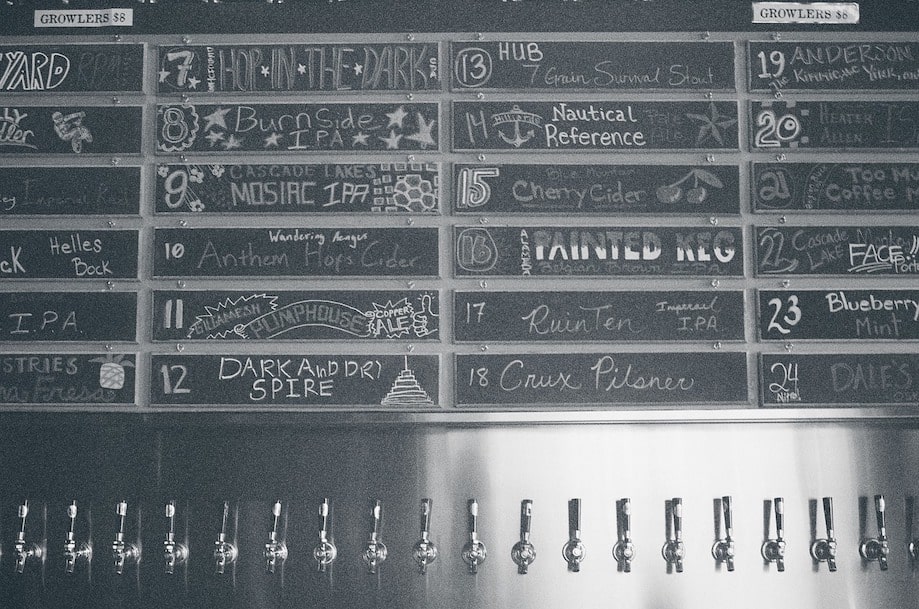 GROWLERS $8
GROWLERS $8
YARD
Helles
Bock
I.P.A
STRIES
Fresa
7 HOP IN THE DARK
8 BURNSIDE
IPA
9 CASCADE LAKES
MOSIAC IPA
10 Wandering Aengus
Anthem Hops Cider
11 GILGAMESH PUMPHOUSE COPPER
ALE
12 DARK AND DRY
SPIRE
13 HUB
7 Grain Survival Stout
14 Nautical
Reference Pale
15 Cherry Cider
16 PAINTED KEG
Belgian Brown IPA
17 RuinTen Imperial
I.P.A
18 Crux Pilsner
19 ANDERSON
20 HEATER
ALLEN
21 TOO
COFFEE
22 Cascade
Lake FACE
23 Blueberry
Mint
24 DALE'S
Nitro!